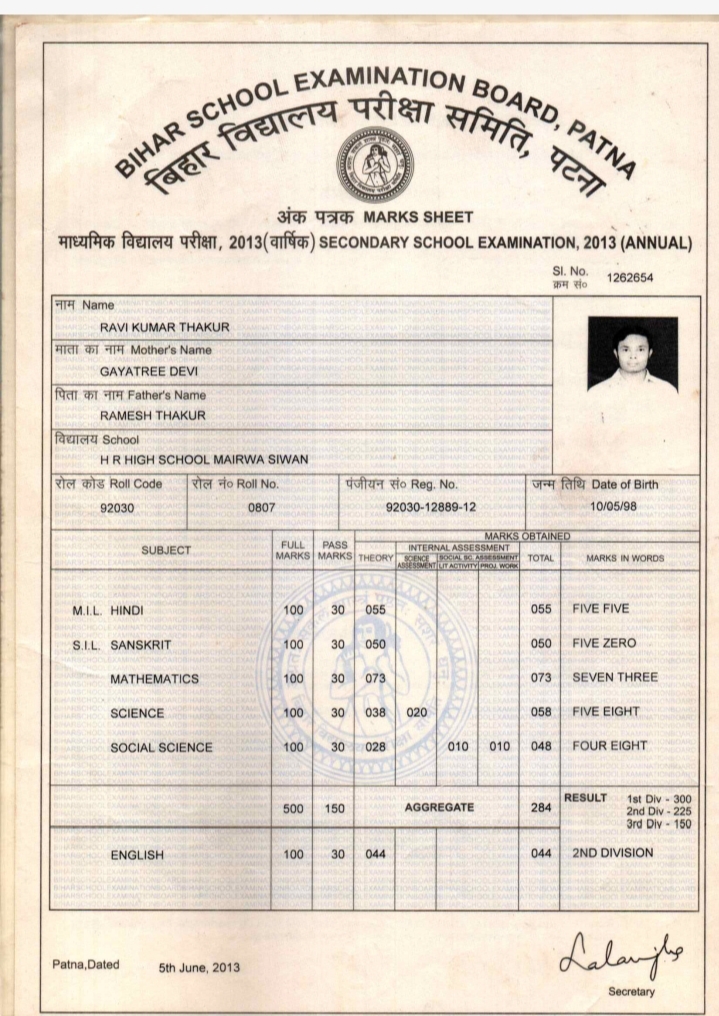 BIHAR SCHOOL EXAMINATION BOARD, PATNA
बिहार विद्यालय परीक्षा समिति, पटना
अंक पत्रक MARKS SHEET
माध्यमिक विद्यालय परीक्षा, 2013(वार्षिक) SECONDARY SCHOOL EXAMINATION, 2013 (ANNUAL)
Sl. No.
क्रम सं० 1262654
नाम Name
RAVI KUMAR THAKUR
माता का नाम Mother's Name
GAYATREE DEVI
पिता का नाम Father's Name
RAMESH THAKUR
विद्यालय School
H R HIGH SCHOOL MAIRWA SIWAN
रोल कोड Roll Code रोल नं० Roll No. पंजीयन सं० Reg. No. जन्म तिथि Date of Birth
92030 0807 92030-12889-12 10/05/98
MARKS OBTAINED
SUBJECT FULL MARKS PASS MARKS THEORY INTERNAL ASSESSMENT TOTAL MARKS IN WORDS
SCIENCE ASSESSMENT SOCIAL SC. ASSESSMENT
LIT ACTIVITY PROJ. WORK
M.I.L. HINDI 100 30 055 055 FIVE FIVE
S.I.L. SANSKRIT 100 30 050 050 FIVE ZERO
MATHEMATICS 100 30 073 073 SEVEN THREE
SCIENCE 100 30 038 020 058 FIVE EIGHT
SOCIAL SCIENCE 100 30 028 010 010 048 FOUR EIGHT
500 150 AGGREGATE 284 RESULT 1st Div - 300
2nd Div - 225
3rd Div - 150
ENGLISH 100 30 044 044 2ND DIVISION
Patna,Dated 5th June, 2013
Secretary